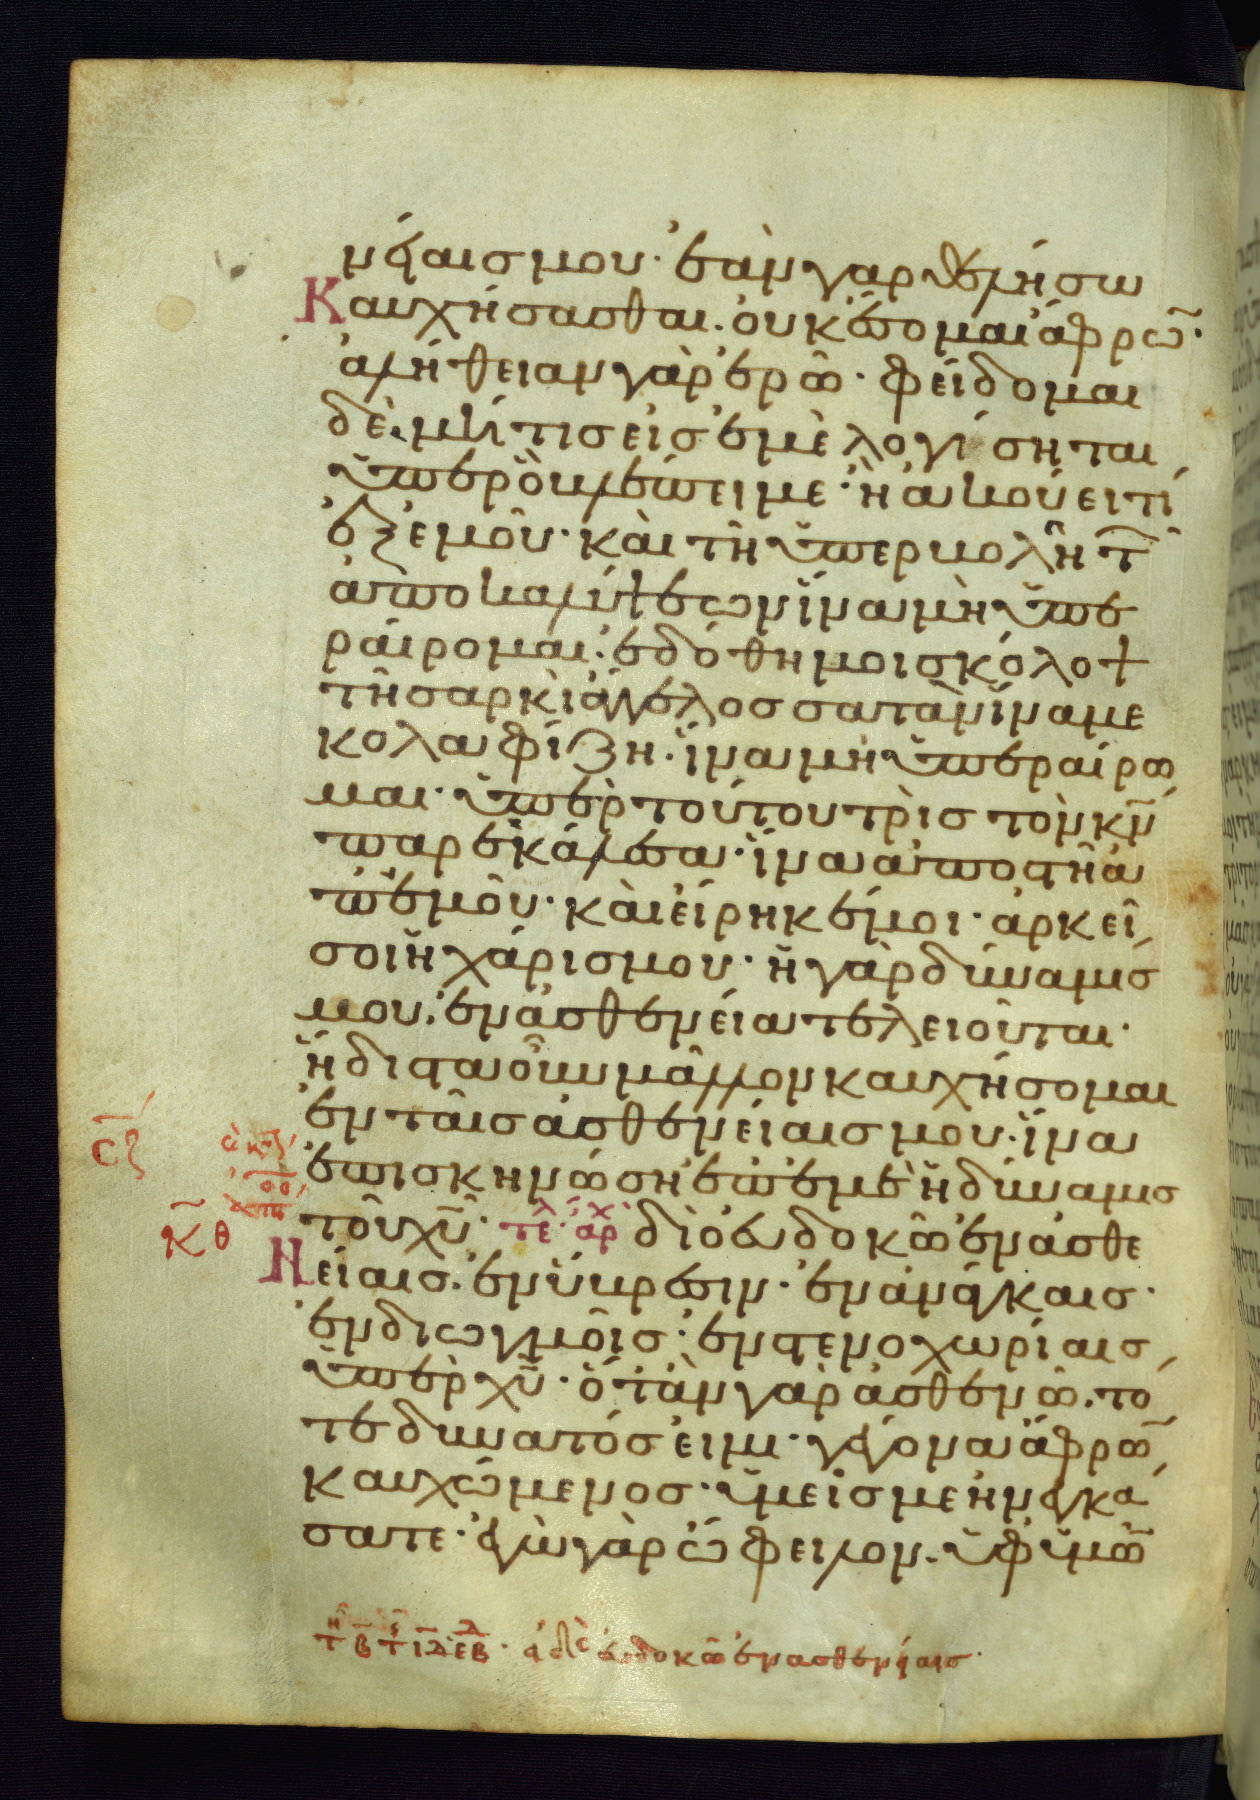 νείαις μου· ἐὰν γὰρ θελήσω
Καυχήσασθαι· οὐκ ἔσομαι ἄφρω̄·
ἀλήθειαν γὰρ ἐρῶ· φείδομαι
δὲ· μή τις εἰς ἐμὲ λογίσηται
ὑπὲρ ὃ βλέπει με· ἢ ἀκούει τι
ἐξ ἐμοῦ· καὶ τῆ ὑπερβολῆ τ̄
ἀποκαλύψεων ἵνα μὴ ὑπε
ραίρομαι· ἐδόθη μοι σκόλοψ
τῆ σαρκὶ ἄγγελος σατὰν ἵνα με
κολαφίζη· ἵνα μὴ ὑπεραίρω
μαι· ὑπὲρ τούτου τρὶς τὸν κ̄ν̄
παρεκάλεσα· ἵνα ἀποστῆ ἀ
π' ἐμοῦ· καὶ εἴρηκέ μοι· ἀρκεῖ
σοι ἡ χάρις μου· ἡ γὰρ δύναμις
μου· ἐν ἀσθενεία τελειοῦται·
ἥδιστα οὖν μᾶλλον καυχήσομαι
ἐν ταῖς ἀσθενείαις μου· ἵνα
ἐπισκηνώση ἐπ' ἐμὲ ἡ δύναμις
τοῦ χ̄ῦ· τε λ· ἀρχ διὸ εὐδοκῶ ἐν ἀσθε
Νείαις· ἐν ὕβρεσιν· ἐν ἀνάγκαις·
ἐν διωγμοῖς· ἐν στενοχωρίαις
ὑπὲρ χ̄ῦ· ὅταν γὰρ ἀσθενῶ· τό
τε δυνατός εἰμι· γέγονα ἄφρω̄
καυχώμενος· ὑμεῖς με ἠναγκά
σατε· ἐγὼ γὰρ ὤφειλον· ὑφ' ὑμῶ̄
κ̄θ
εὐδοκῶ ἐν ἀσθενείαις·